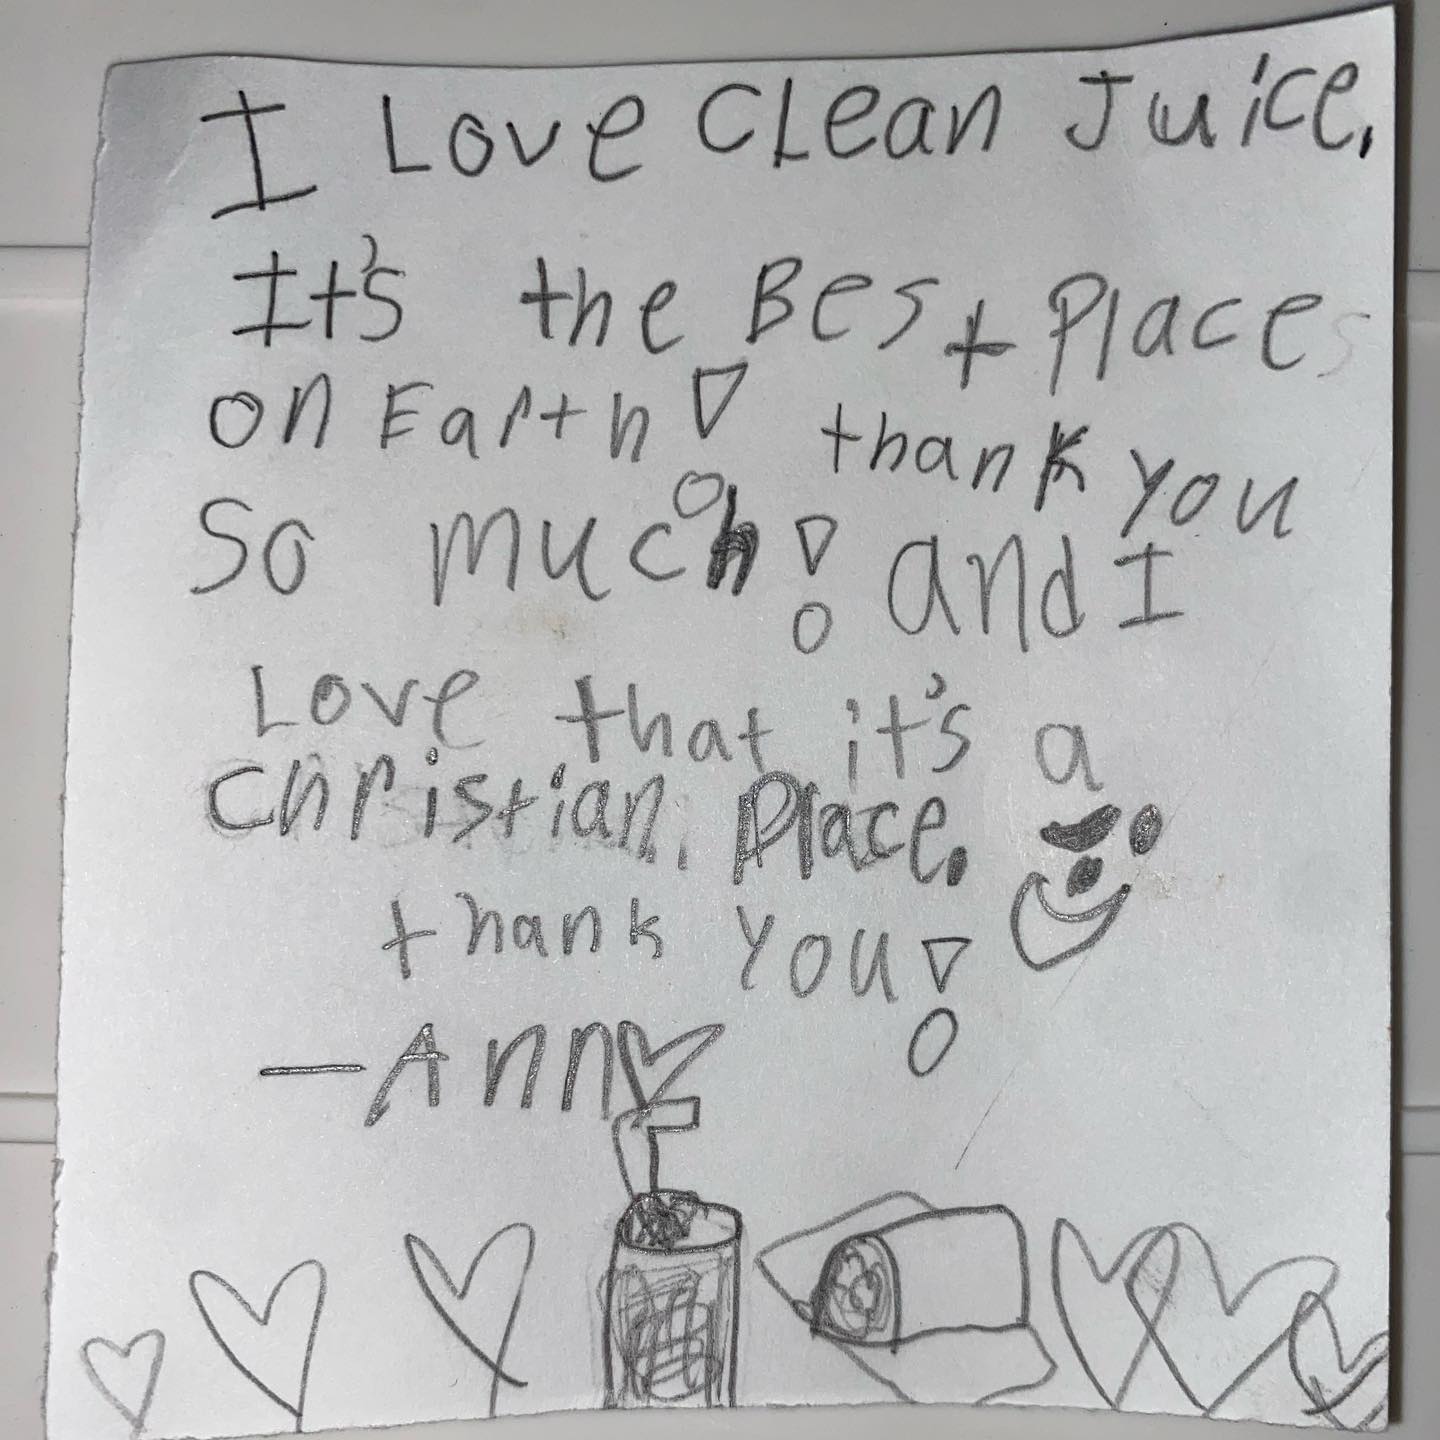 I Love Clean Juice.
It's the Best Places
on Earth! thank you
So much! and I
Love that it's a
Christian, Place.
thank you!
—Ann